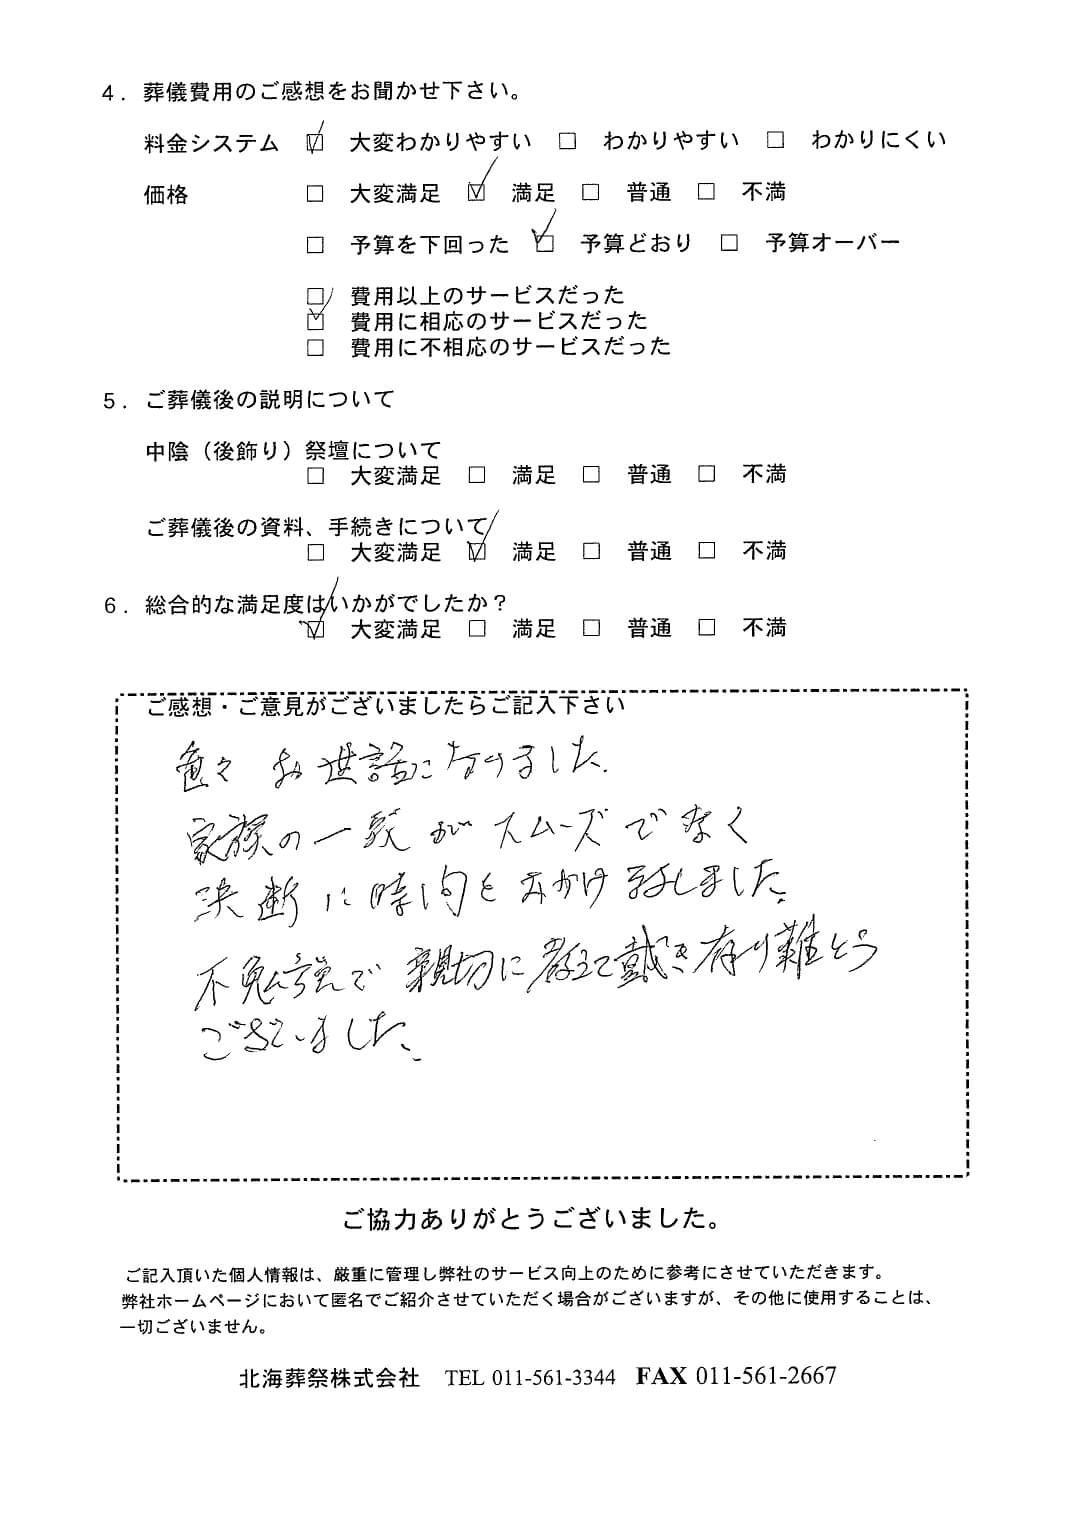 4．葬儀費用のご感想をお聞かせ下さい。
料金システム ☑ 大変わかりやすい □ わかりやすい □ わかりにくい
価格 □ 大変満足 ☑ 満足 □ 普通 □ 不満
□ 予算を下回った ☑ 予算どおり □ 予算オーバー
□ 費用以上のサービスだった
☑ 費用に相応のサービスだった
□ 費用に不相応のサービスだった
5．ご葬儀後の説明について
中陰（後飾り）祭壇について
□ 大変満足 □ 満足 □ 普通 □ 不満
ご葬儀後の資料、手続きについて
□ 大変満足 ☑ 満足 □ 普通 □ 不満
6．総合的な満足度はいかがでしたか？
☑ 大変満足 □ 満足 □ 普通 □ 不満
ご感想・ご意見がございましたらご記入下さい
色々 お世話になりました.
家族の一致がスムーズでなく
決断に時間をおかけ致しました。
不勉強で親切に教えて戴き有り難とう
ございました。
ご協力ありがとうございました。
ご記入頂いた個人情報は、厳重に管理し弊社のサービス向上のために参考にさせていただきます。
弊社ホームページにおいて匿名でご紹介させていただく場合がございますが、その他に使用することは、
一切ございません。
北海葬祭株式会社 TEL 011-561-3344 FAX 011-561-2667